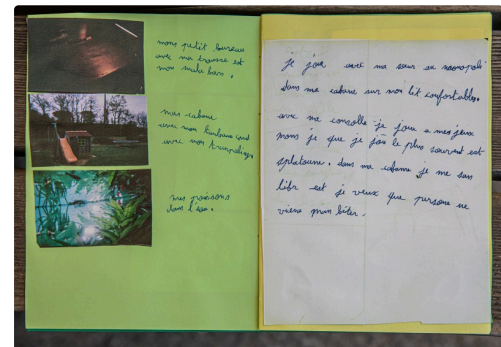 mon petit bureau
avec ma trousse est
mon
mes cabane
avec mon
avec mon
mes poissons
dans l'eau.
je joue avec ma sœur au monopoli
dans ma cabane sur mon lit confortable.
avec ma consolle je joue a mes jeux
mons je que je joue le plus souvent est
splatoune. dans ma cabane je me sans
libr est je veux que persone ne
viene